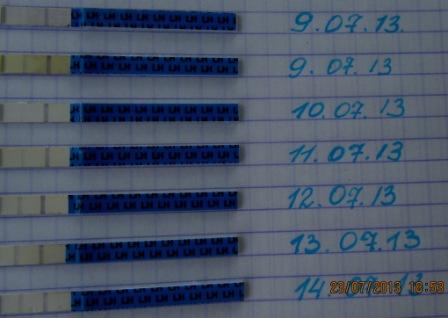 9.07.13.
9.07.13
10.07.13
11.07.13
12.07.13
13.07.13
14.07.13
23/07/2013 18:53
LH LH LH LH LH LH LH LH
LH LH LH LH LH LH LH LH
LH LH LH LH LH LH LH LH
LH LH LH LH LH LH LH LH
LH LH LH LH LH LH LH LH
LH LH LH LH LH LH LH LH
LH LH LH LH LH LH LH LH